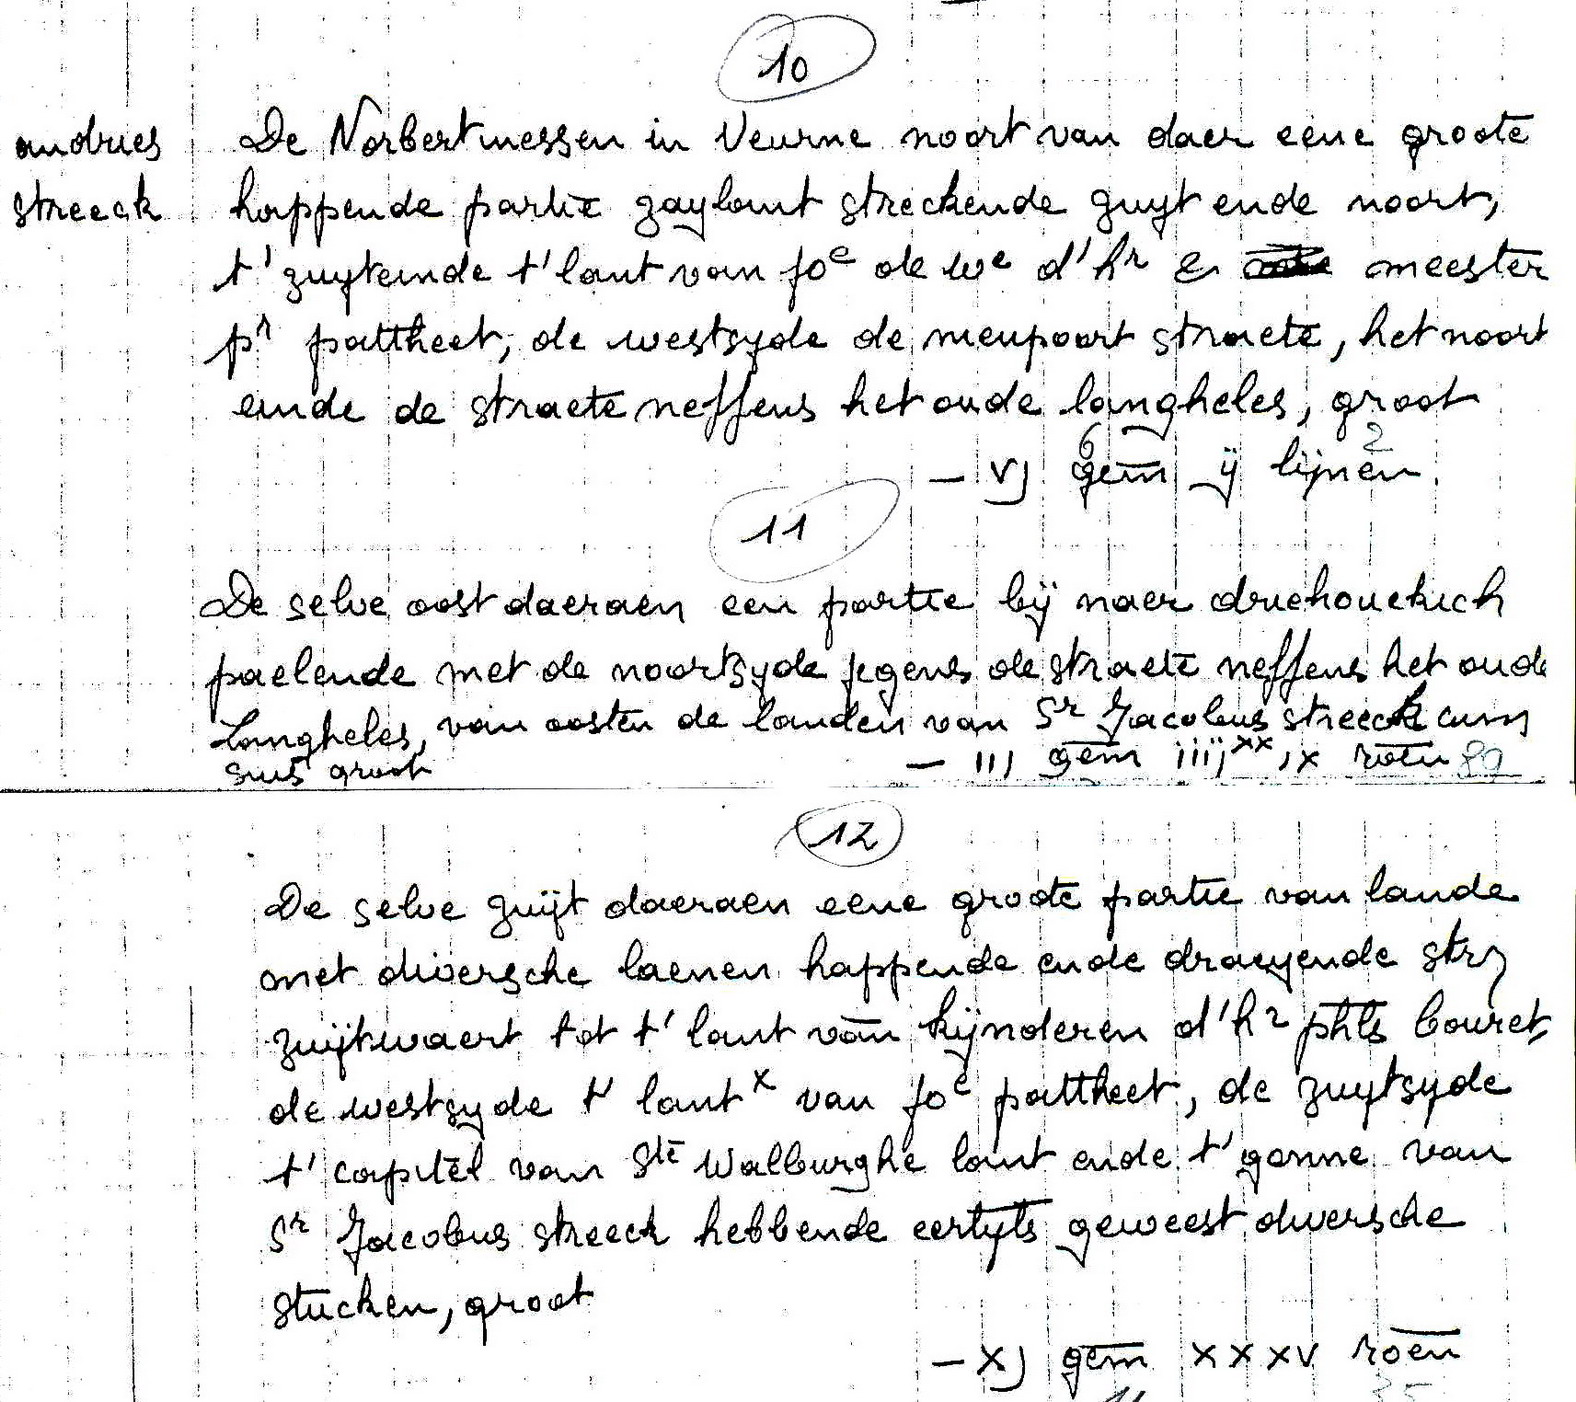 10
andries De Norbertinessen in Veurne noort van daer eene groote
streeck happende partie zaylant streckende zuyt ende noort,
t' zuyteinde t' lant van joe de we d' hr & meester
pr pattheet, de westsyde de nieupoort straete, het noort
einde de straete neffens het oude langheles, groot
6 2
- vj gem ij lijnen.
11
De selve oost daeraen een partie bij naer driehouckich
paelende met de noortsyde jegens de straete neffens het oude
Langheles, van oosten de landen van Sr Jacobus streeck cum
suis groot - iij gem iiij xx ix roen 89
12
De selve zuijt daeraen eene groote partie van lande
met diversche laenen happende ende draeyende str
zuijtwaert tot t' lant van kijnderen d' hr phls bouret,
de westsyde t' lant x van joe pattheet, de zuytsyde
t' capitel van Ste Walburghe lant ende t' gonne van
Sr Jacobus streeck hebbende eertyts geweest diversche
stucken, groot
- xj gem xxxv roen
11 35